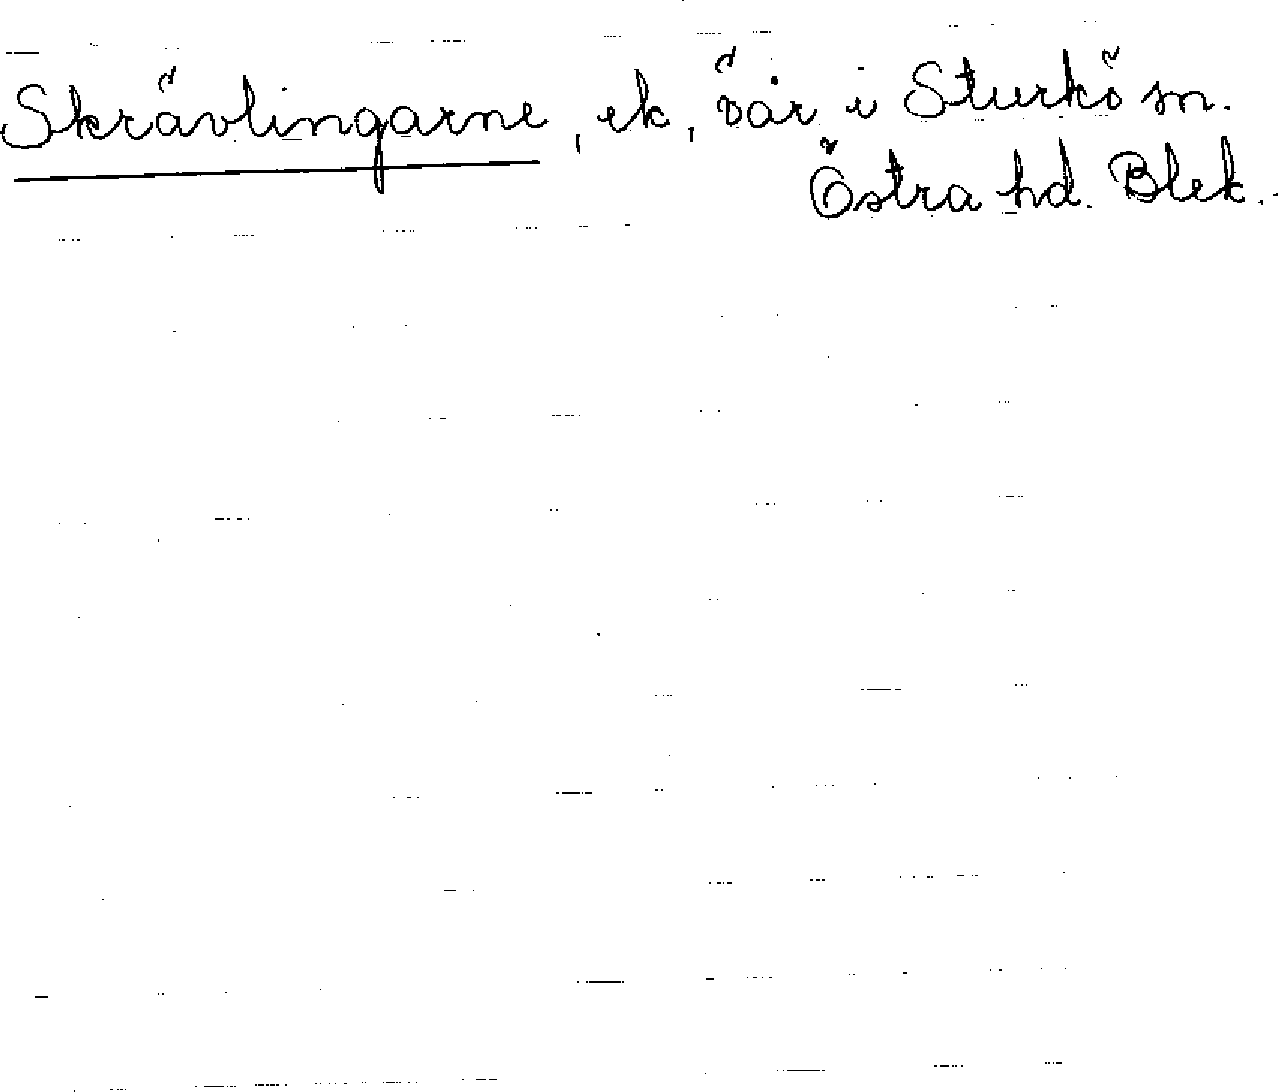 Skrävlingarne, ek, öar i Sturkö sn.
Östra hd. Blek.